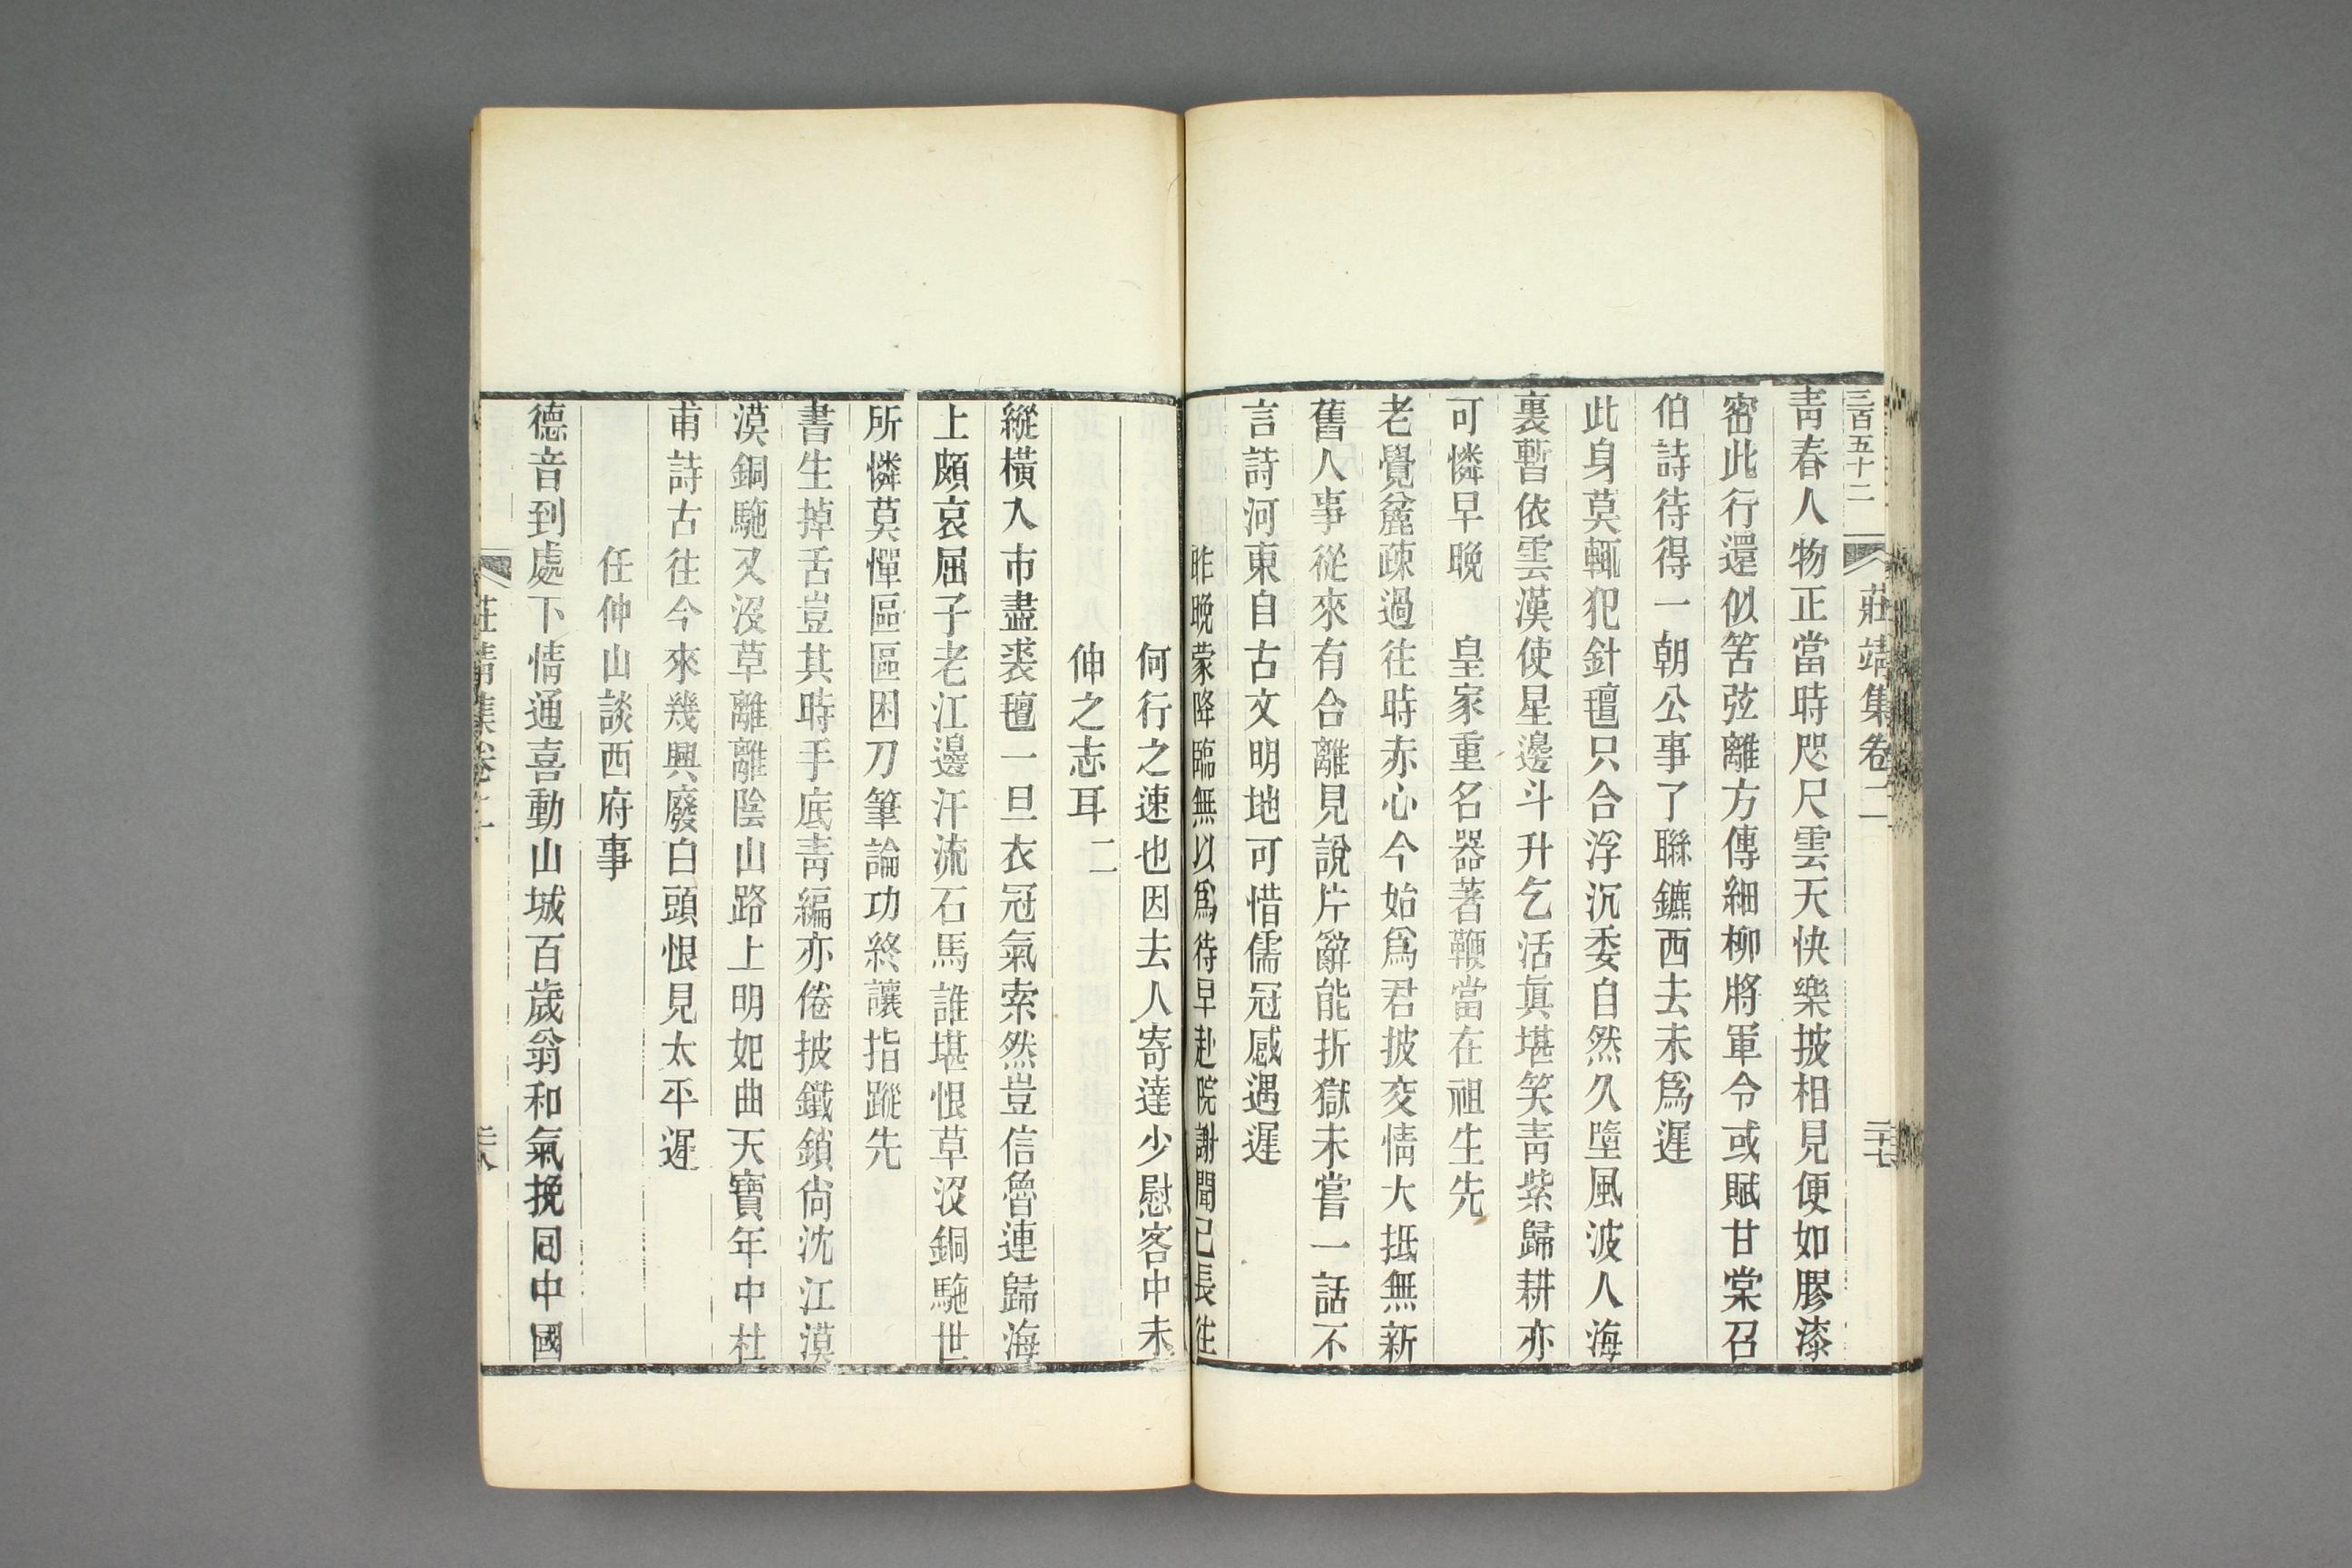 三百五十二 莊靖集卷二 二十七
靑春人物正當時咫尺雲天快樂披相見便如膠漆
密此行還似筈弦離方傳細柳將軍令或賦甘棠召
伯詩待得一朝公事了聯鑣西去未爲遲
此身莫輒犯針氊只合浮沉委自然久墮風波人海
裏暫依雲漢使星邊斗升乞活眞堪笑靑紫歸耕亦
可憐早晚 皇家重名器著鞭當在祖生先
老覺麄疎過往時赤心今始爲君披交情大抵無新
舊人事從來有合離見說片辭能折獄未嘗一話不
言詩河東自古文明地可惜儒冠感遇遲
昨晚蒙降臨無以爲待早赴院謝聞已長往
何行之速也因去人寄達少慰客中未
伸之志耳二
縱橫入市盡裘氊一旦衣冠氣索然豈信魯連歸海
上頗哀屈子老江邊汗流石馬誰堪恨草沒銅駞世
所憐莫憚區區困刀筆論功終讓指蹤先
書生掉舌豈其時手底靑編亦倦披鐵鎖尙沈江漠
漠銅駞又沒草離離陰山路上明妃曲天寶年中杜
甫詩古往今來幾興廢白頭恨見太平遲
任仲山談西府事
德音到處下情通喜動山城百歲翁和氣挽回中國
莊靖集卷二 二十八